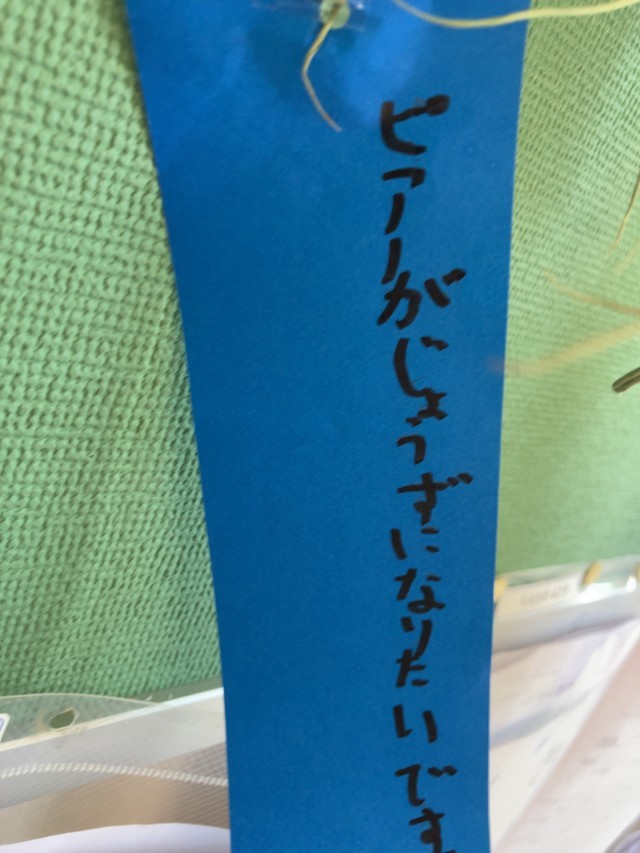 ピアノがじょうずになりたいです